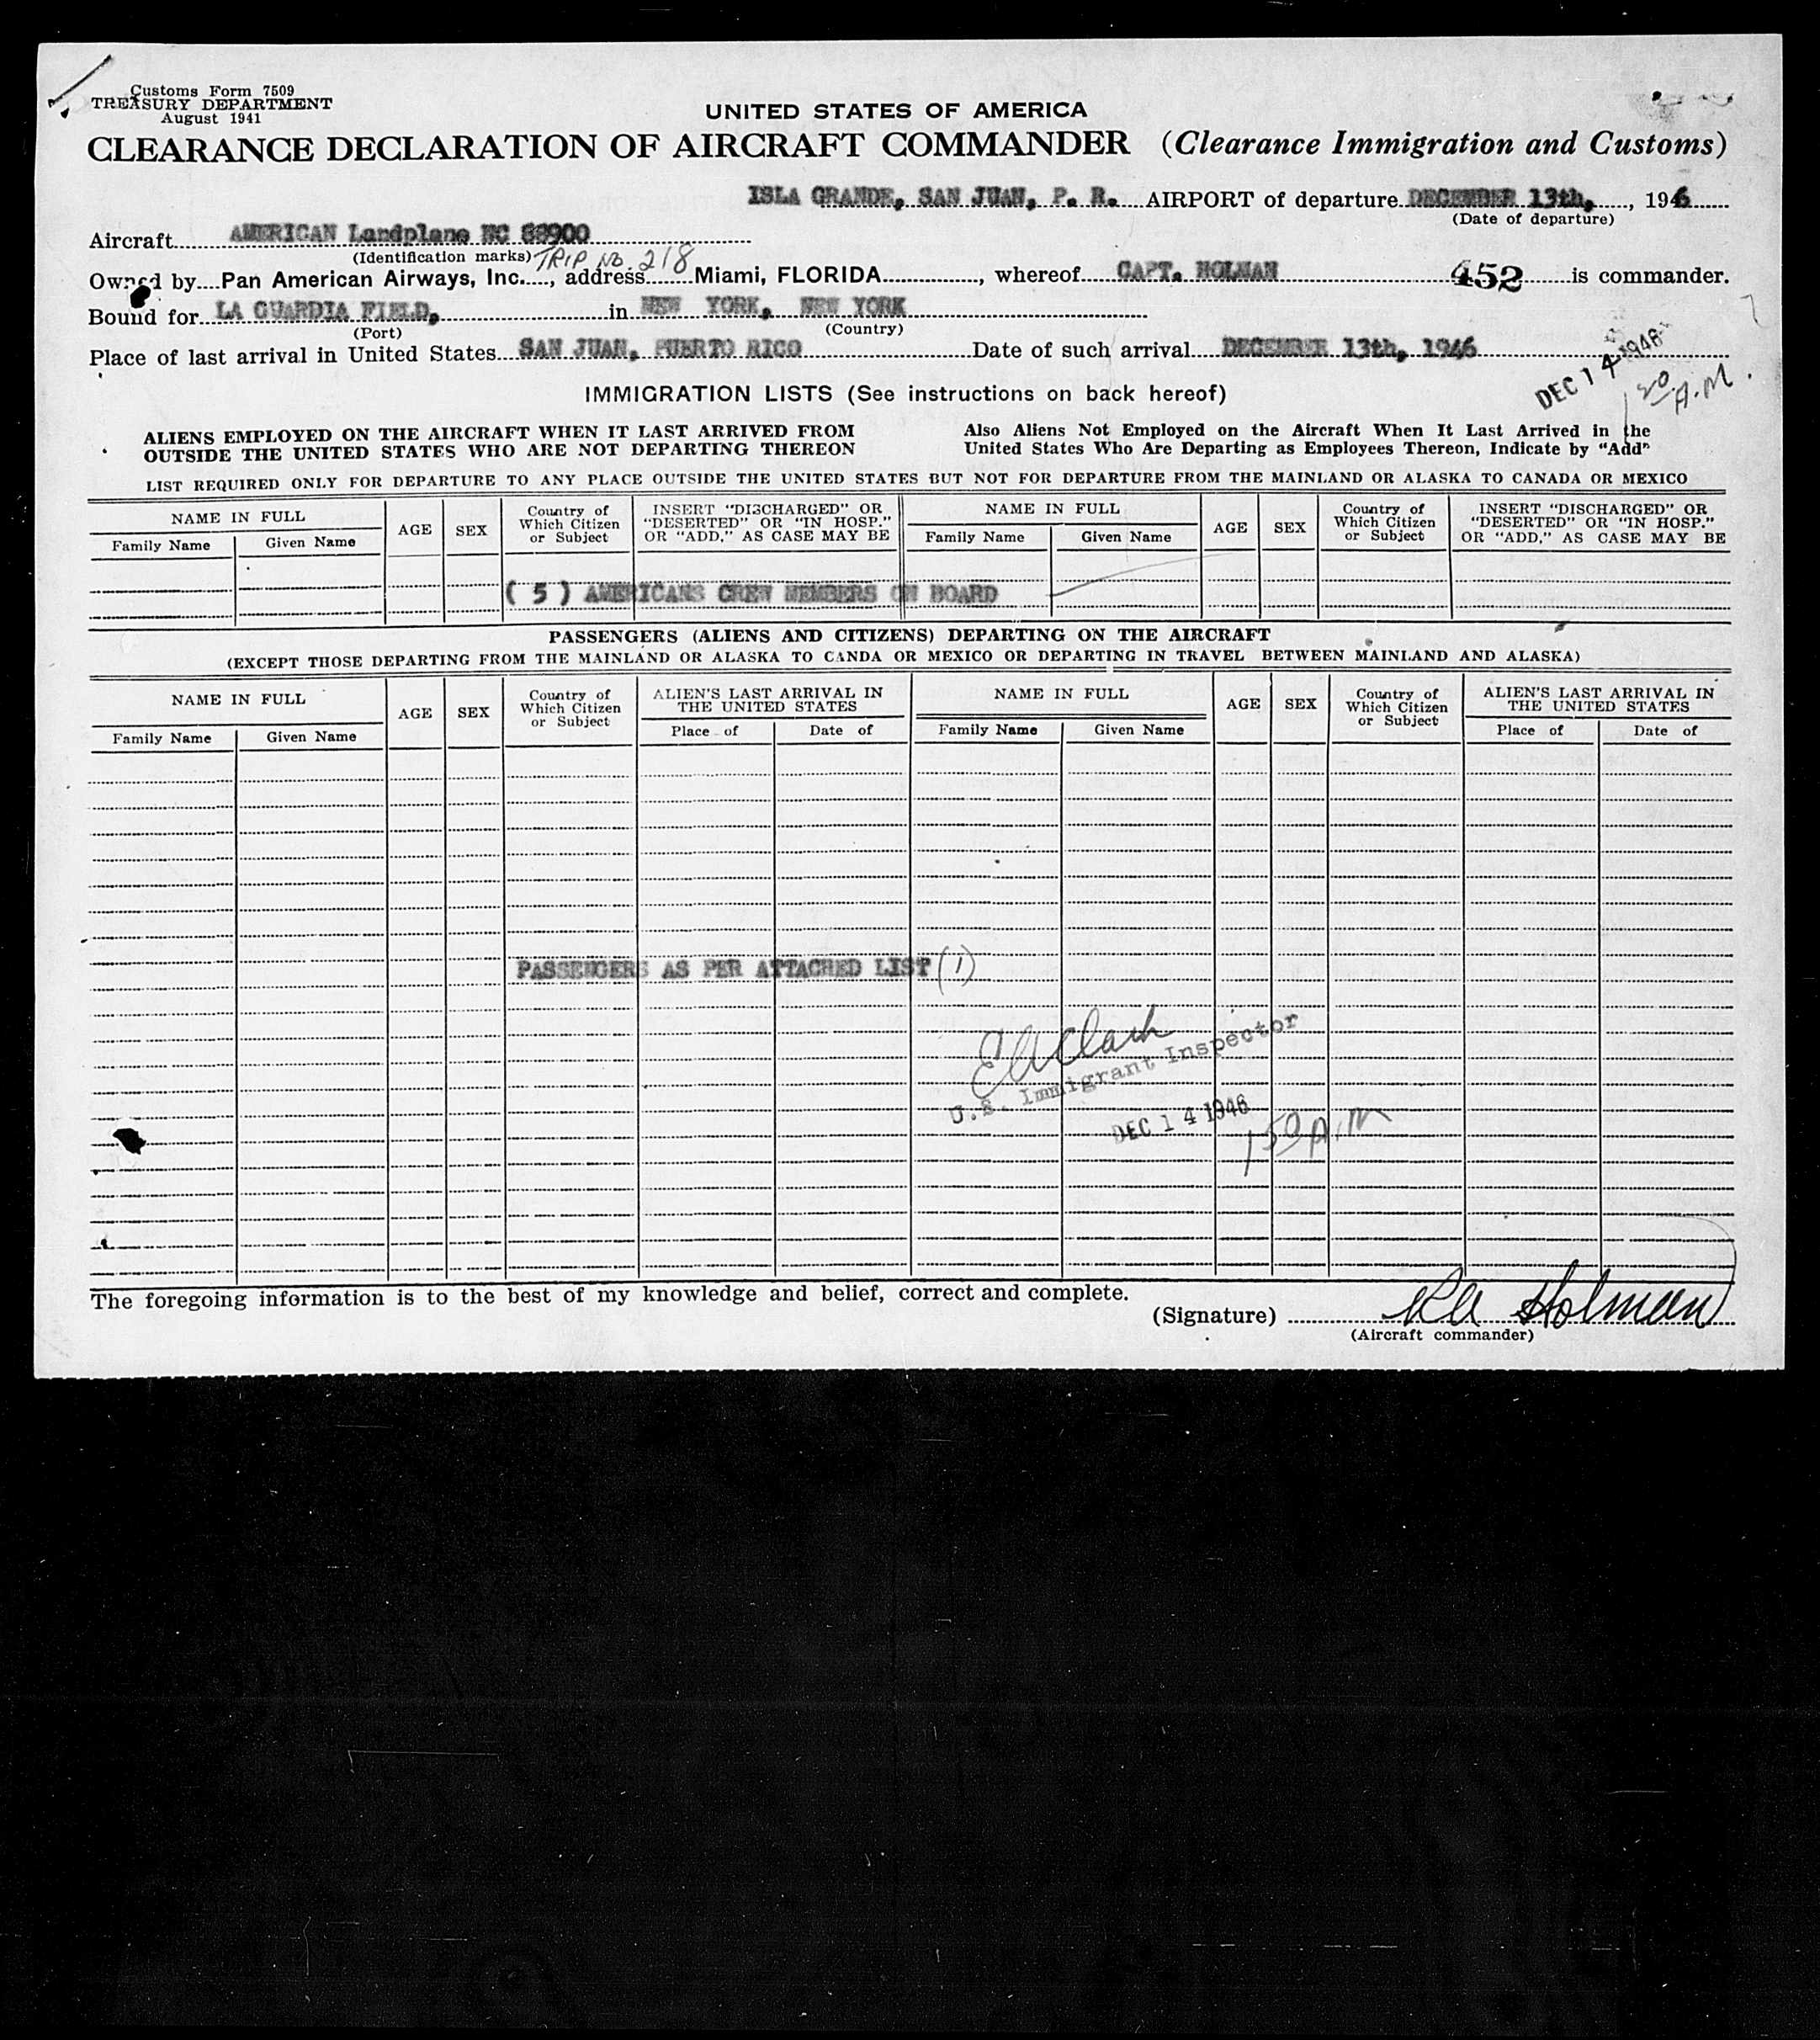 Customs Form 7509
TREASURY DEPARTMENT
August 1941
UNITED STATES OF AMERICA
CLEARANCE DECLARATION OF AIRCRAFT COMMANDER (Clearance Immigration and Customs)
ISLA GRANDE, SAN JUAN, P. R. AIRPORT of departure DECEMBER 13th, , 1946
(Date of departure)
Aircraft AMERICAN Landplane NC 88900
(Identification marks) TRIP No. 218
Owned by Pan American Airways, Inc. , address Miami, FLORIDA , whereof CAPT. HOLMAN 452 is commander.
Bound for LA GUARDIA FIELD, in NEW YORK, NEW YORK
(Port) (Country)
Place of last arrival in United States SAN JUAN, PUERTO RICO Date of such arrival DECEMBER 13th, 1946
DEC 14 1946
120 A.M.
IMMIGRATION LISTS (See instructions on back hereof)
ALIENS EMPLOYED ON THE AIRCRAFT WHEN IT LAST ARRIVED FROM
OUTSIDE THE UNITED STATES WHO ARE NOT DEPARTING THEREON
Also Aliens Not Employed on the Aircraft When It Last Arrived in the
United States Who Are Departing as Employees Thereon, Indicate by “Add”
LIST REQUIRED ONLY FOR DEPARTURE TO ANY PLACE OUTSIDE THE UNITED STATES BUT NOT FOR DEPARTURE FROM THE MAINLAND OR ALASKA TO CANADA OR MEXICO
NAME IN FULL
Family Name Given Name
AGE
SEX
Country of
Which Citizen
or Subject
INSERT “DISCHARGED” OR
“DESERTED” OR “IN HOSP.”
OR “ADD,” AS CASE MAY BE
NAME IN FULL
Family Name Given Name
AGE
SEX
Country of
Which Citizen
or Subject
INSERT “DISCHARGED” OR
“DESERTED” OR “IN HOSP.”
OR “ADD,” AS CASE MAY BE
( 5 ) AMERICANS CREW MEMBERS ON BOARD
PASSENGERS (ALIENS AND CITIZENS) DEPARTING ON THE AIRCRAFT
(EXCEPT THOSE DEPARTING FROM THE MAINLAND OR ALASKA TO CANDA OR MEXICO OR DEPARTING IN TRAVEL BETWEEN MAINLAND AND ALASKA)
NAME IN FULL
Family Name Given Name
AGE
SEX
Country of
Which Citizen
or Subject
ALIEN'S LAST ARRIVAL IN
THE UNITED STATES
Place of Date of
NAME IN FULL
Family Name Given Name
AGE
SEX
Country of
Which Citizen
or Subject
ALIEN'S LAST ARRIVAL IN
THE UNITED STATES
Place of Date of
PASSENGERS AS PER ATTACHED LIST (1)
U.S. Immigrant Inspector
DEC 14 1946
150 A.M
The foregoing information is to the best of my knowledge and belief, correct and complete.
(Signature) Holman
(Aircraft commander)